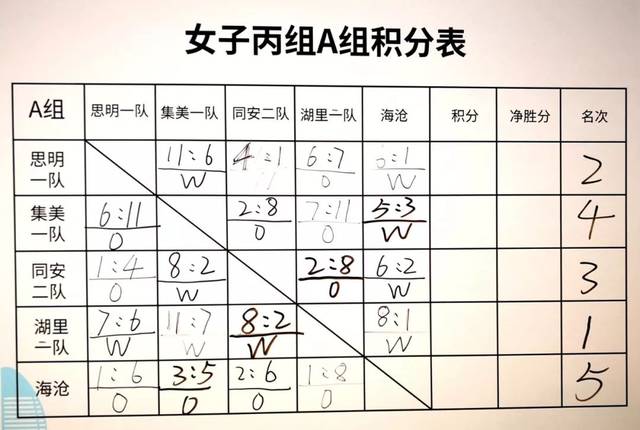 女子丙组A组积分表
A组 思明一队 集美一队 同安二队 湖里二队 海沧 积分 净胜分 名次
思明一队 11:6 W 4:1 6:7 0 6:1 W 2
集美一队 6:11 0 2:8 0 7:11 0 5:3 W 4
同安二队 1:4 0 8:2 W 2:8 0 6:2 W 3
湖里二队 7:6 W 11:7 W 8:2 W 8:1 W 1
海沧 1:6 0 3:5 0 2:6 0 1:8 0 5